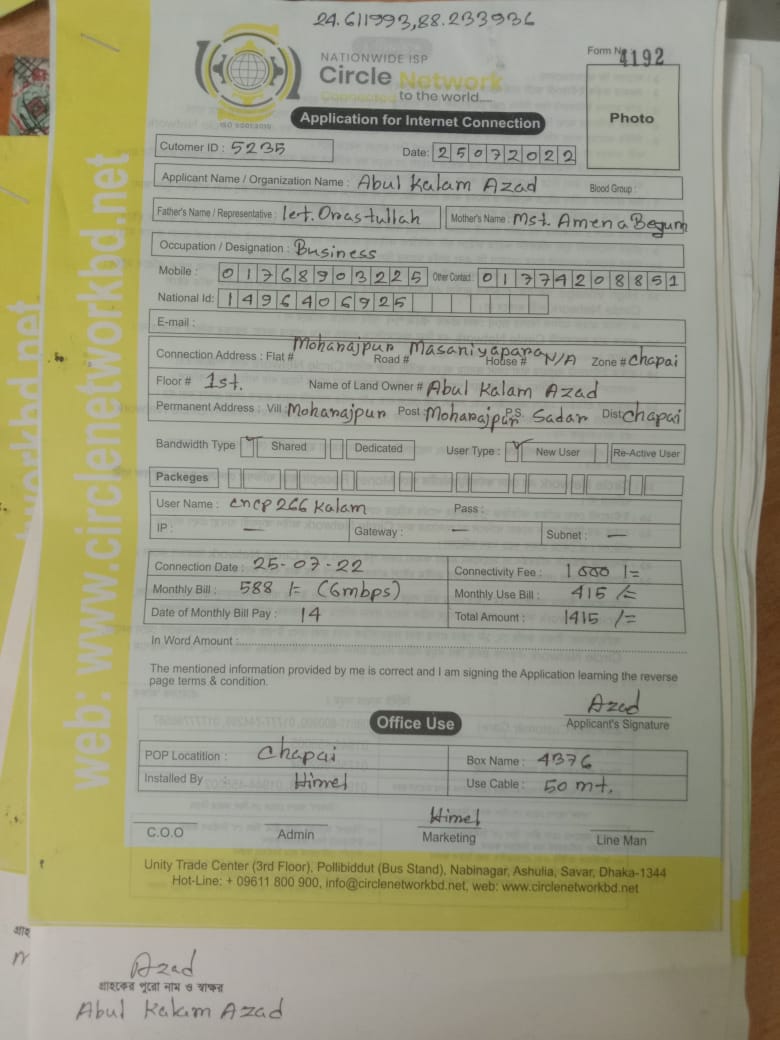 24.611993,88.233936
Form N 4192
NATIONWIDE ISP
Circle Network
Connected to the world....
ISO 9001:2015
Photo
Application for Internet Connection
Cutomer ID : 5235 Date: 25072022
Applicant Name / Organization Name : Abul Kalam Azad Blood Group :
Father's Name / Representative : let. Orastullah Mother's Name : Mst. Amena Begum
Occupation / Designation : Business
Mobile : 01768903225 Other Contact : 01774208851
National Id: 1496406925
E-mail :
Mohanajpur Masaniyapara
Connection Address : Flat # Road # House # N/A Zone # chapai
Floor # 1st. Name of Land Owner # Abul Kalam Azad
Permanent Address : Vill Mohanajpur Post Mohanajpur P.S. Sadar Dist chapai
Bandwidth Type ✓ Shared Dedicated User Type : ✓ New User Re-Active User
Packeges
User Name : cncp266kalam Pass :
IP : — Gateway : — Subnet : —
Connection Date : 25-07-22 Connectivity Fee : 1000/=
Monthly Bill : 588/= (6mbps) Monthly Use Bill : 415/=
Date of Monthly Bill Pay : 14 Total Amount : 1415/=
In Word Amount :
The mentioned information provided by me is correct and I am signing the Application learning the reverse
page terms & condition.
Azad
Applicant's Signature
Office Use
POP Locatition : chapai Box Name : 4376
Installed By : Himel Use Cable : 50 mt.
Himel
C.O.O Admin Marketing Line Man
Unity Trade Center (3rd Floor), Pollibiddut (Bus Stand), Nabinagar, Ashulia, Savar, Dhaka-1344
Hot-Line: + 09611 800 900, info@circlenetworkbd.net, web: www.circlenetworkbd.net
web: www.circlenetworkbd.net
tworkbd.net
Azad
গ্রাহকের পুরো নাম ও স্বাক্ষর
Abul Kalam Azad